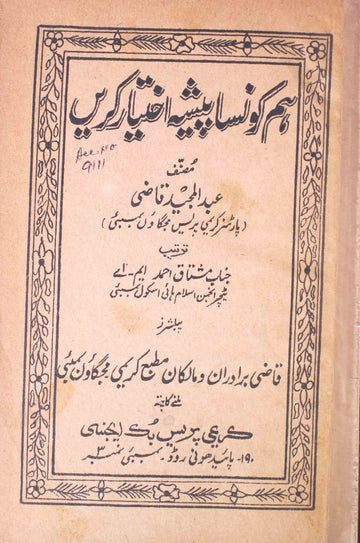 ہم کونسا پیشہ اختیار کریں
Acc. No
9111
مصنّف
عبد المجید قاضی
(پارٹنر کریمی پریس مجگاؤں بمبئی)
ترتیب
جناب مشتاق احمد ایم-اے
ٹیچر انجمن اسلام ہائی اسکول بمبئی
پبلشرز
قاضی برادران و مالکان مطبع کریمی مجگاؤں بمبئی
ملنے کا پتہ
کریمی پریس بک ایجنسی
۱۹۰- پائیدھونی روڈ- بمبئی نمبر ۳